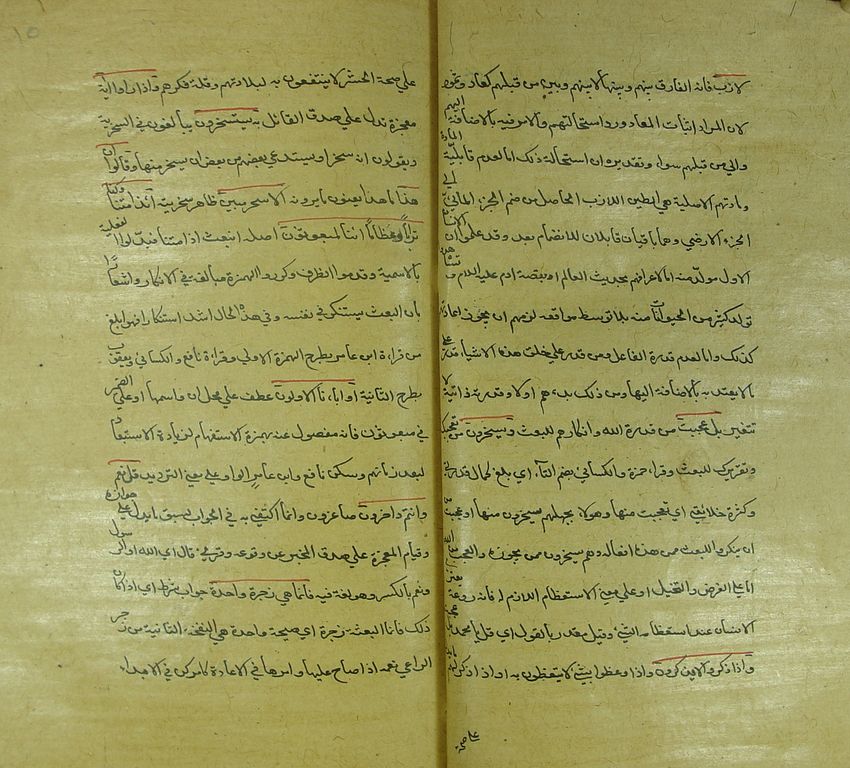 لازب فانه الفارق بينهم وبينها لا بينهم وبين من قبلهم كعاد وثمود
لان المراد اثبات المعاد ورد استحالتهم والامر فيه بالاضافة اليهم
والي من قبلهم سواء وتقديره ان استحالة ذلك اما لعدم قابلية المادة
ومادتهم الاصلية هي الطين اللازب الحاصل من ضم الجزء المائي الي
الجزء الارضي وهما باقيان قابلان للانضمام بعد وقد علموا ان الانسان
الاول مولد منه اما لاعترافهم بحدوث العالم او بقصة ادم عليه السلام وشاهدوا
تولد كثير من الحيوانات منه بلا توسط مواقعة لزمهم ان يجوزوا اعادتهم
كذلك واما لعدم قدرة الفاعل ومن قدر علي خلق هذه الاشياء قدر علي
ما لا يعتد به بالاضافة اليها ومن ذلك بدءهم اولا وقدرته ذاتية لا
تتغير بل عجبت من قدرة الله وانكارهم للبعث ويسخرون من تعجبك
وتقريرك للبعث وقراء حمزة والكسائي بضم التاء اي بلغ كمال قدرتي
وكثرة خلائقي اني تعجبت منها وهولاء بجهلهم يسخرون منها او عجبت من
ان ينكروا البعث ممن هذه افعاله وهم يسخرون ممن يجوزه والعجب من الله
اما علي الفرض والتخييل او علي معني الاستعظام اللازم له فانه روعة تعتري
الانسان عند استعظامه الشيء وقيل مقدر بالقول اي قل يا محمد بل عجبت
واذا ذكروا لا يذكرون واذا وعظوا بشيء لا يتعظون به او اذا ذكر لهم ما يدل
علي صحة
علي صحة الحشر لا ينتفعون به لبلادتهم وقلة فكرهم واذا راوا اية
معجزة تدل علي صدق القائل به يستسخرون يبالغون في السخرية
ويقولون انه سخر او يستدعي بعضهم من بعض ان يسخر منها وقالوا ان
هذا ما هذا يعنون ما يرونه الا سحر مبين ظاهر سحريته ائذا متنا وكنا
ترابا وعظاما ائنا لمبعوثون اصله انبعث اذا متنا فبدلوا الفعلية
بالاسمية وقدموا الظرف وكرروا الهمزة مبالغة في الانكار واشعارا
بان البعث مستنكر في نفسه وفي هذه الحال اشد استنكارا فهو ابلغ
من قراءة ابن عامر بطرح الهمزة الاولي وقراءة نافع والكسائي ويعقوب
بطرح الثانية او اباؤنا الاولون عطف علي محل ان واسمها او علي الضمير
في مبعوثون فانه مفصول عنه بهمزة الاستفهام لزيادة الاستبعاد
لبعد زمانهم وسكن نافع وابن عامر الواو علي معني الترديد قل نعم
وانتم داخرون صاغرون وانما اكتفي به في الجواب لسبق ما يدل علي جوازه
وقيام المعجزة علي صدق المخبر عن وقوعه وقرئ قال اي الله او الرسول
ونعم بالكسر وهو لغة فيه فانما هي زجرة واحدة جواب شرط اي اذا كان
ذلك فانما البعثة زجرة اي صيحة واحدة هي النفخة الثانية من زجر
الراعي غنمه اذا صاح عليها وامرها في الاعادة كامر كن في الابداء